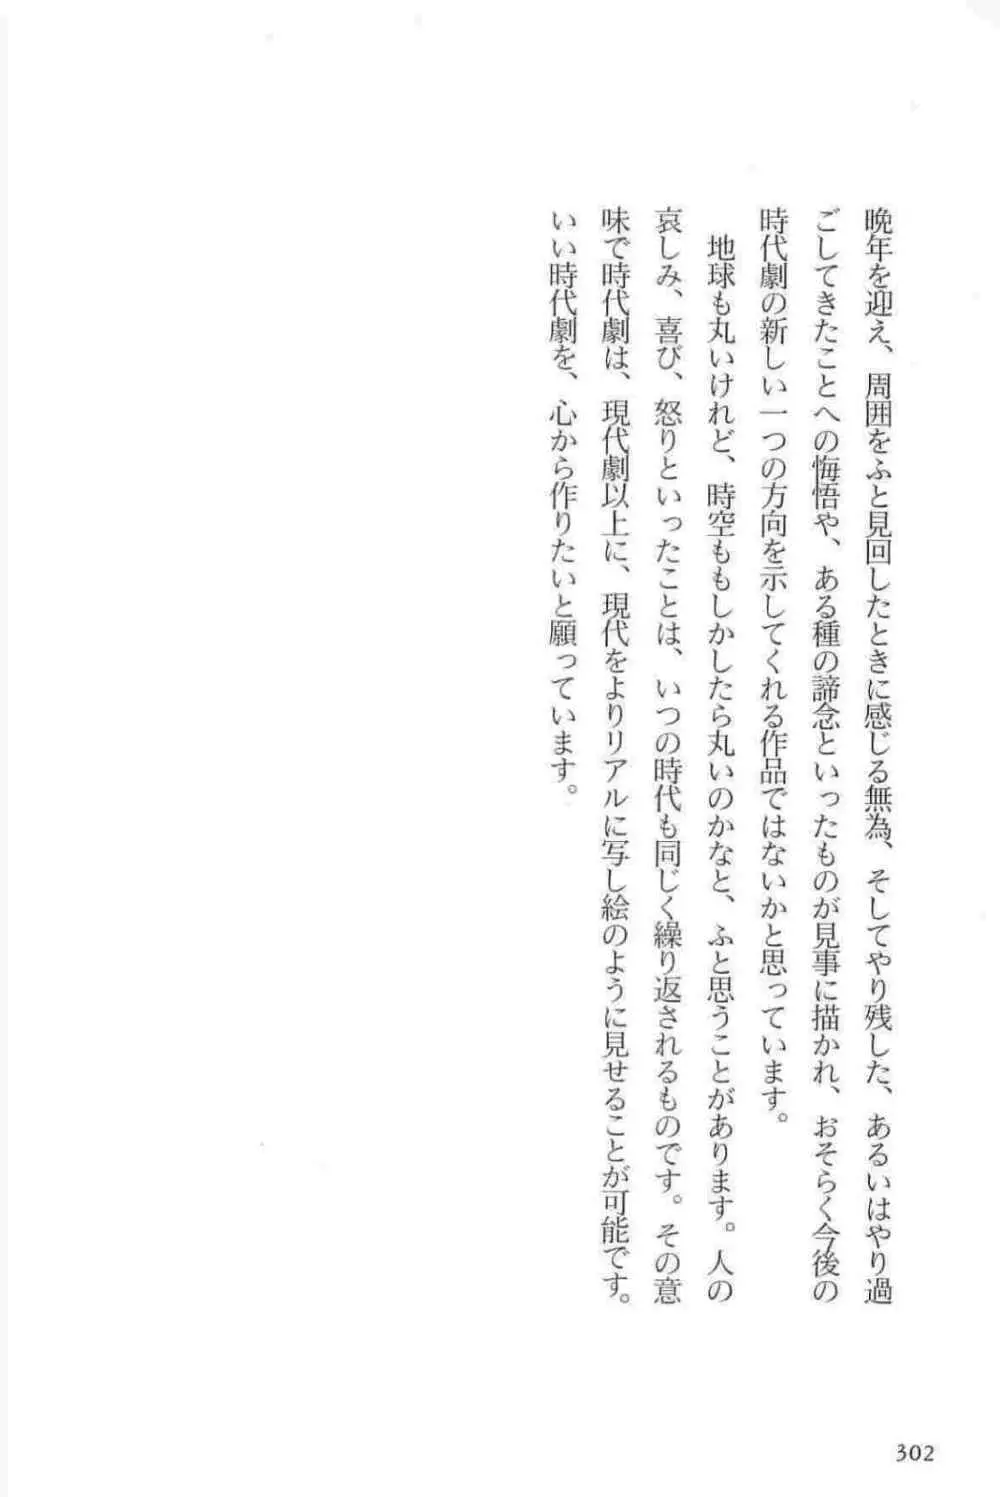 晩年を迎え、周囲をふと見回したときに感じる無為、そしてやり残した、あるいはやり過
ごしてきたことへの悔悟や、ある種の諦念といったものが見事に描かれ、おそらく今後の
時代劇の新しい一つの方向を示してくれる作品ではないかと思っています。
地球も丸いけれど、時空ももしかしたら丸いのかなと、ふと思うことがあります。人の
哀しみ、喜び、怒りといったことは、いつの時代も同じく繰り返されるものです。その意
味で時代劇は、現代劇以上に、現代をよりリアルに写し絵のように見せることが可能です。
いい時代劇を、心から作りたいと願っています。
302